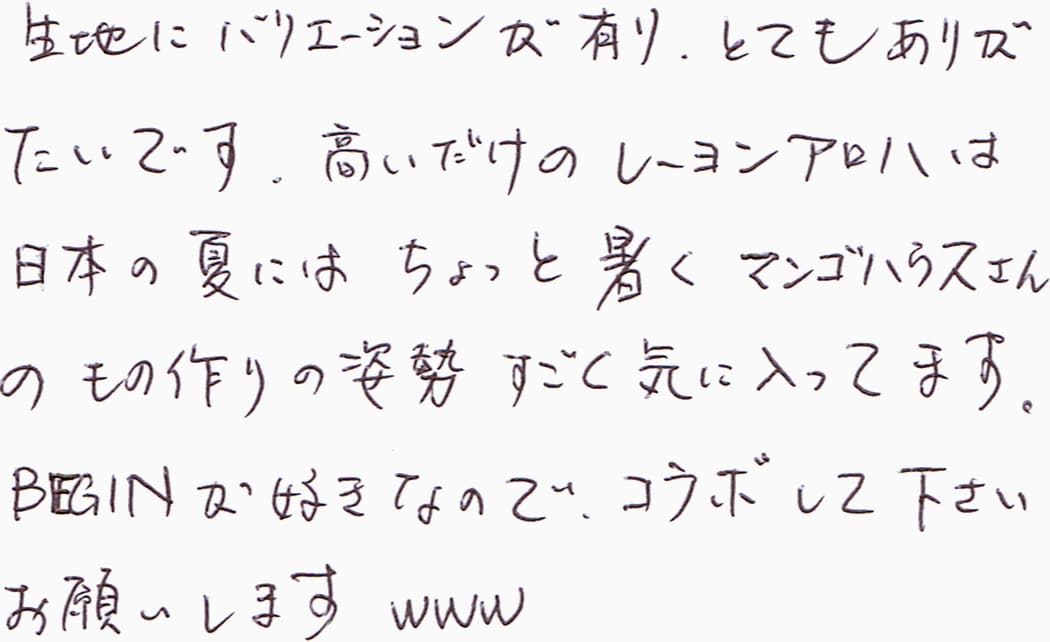 生地にバリエーションが有り.とてもありが
たいです.高いだけのレーヨンアロハは
日本の夏にはちょっと暑くマンゴハウスさん
のもの作りの姿勢すごく気に入ってます。
BEGINが好きなので、コラボして下さい
お願いします www